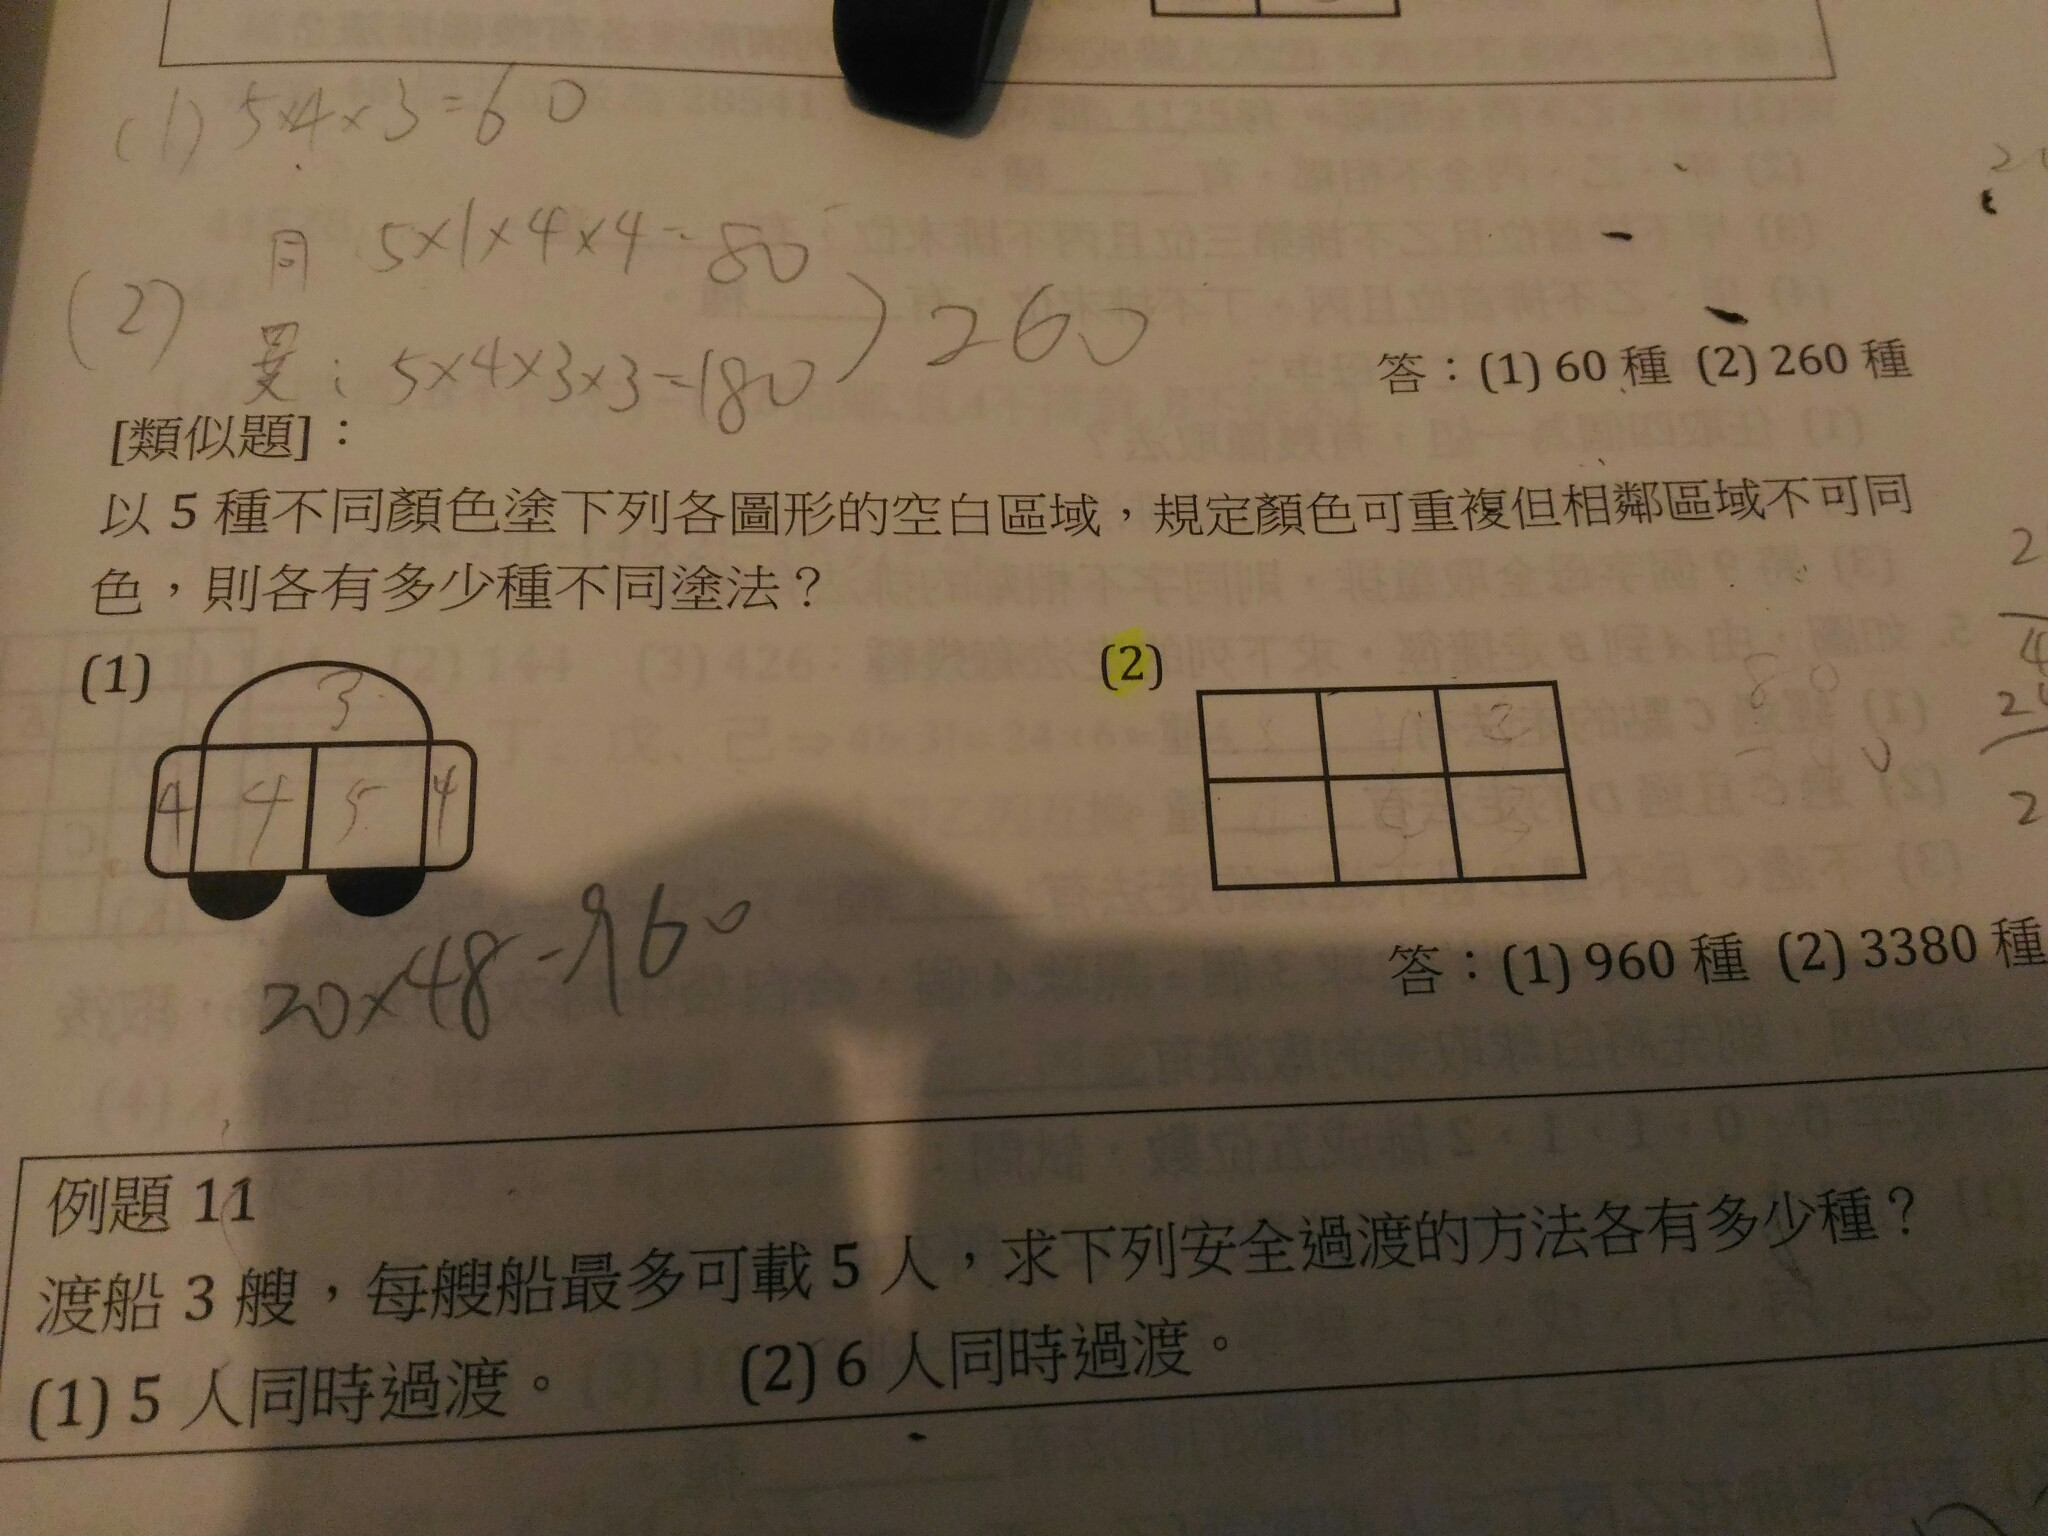 (1) 5×4×3=60
同 5×1×4×4=80
(2) 260
異: 5×4×3×3=180
答：(1) 60 種 (2) 260 種
[類似題]：
以 5 種不同顏色塗下列各圖形的空白區域，規定顏色可重複但相鄰區域不可同
色，則各有多少種不同塗法？
(1) (2)
3
4 4 5 4
20×48=960
答：(1) 960 種 (2) 3380 種
例題 11
渡船 3 艘，每艘船最多可載 5 人，求下列安全過渡的方法各有多少種？
(1) 5 人同時過渡。 (2) 6 人同時過渡。